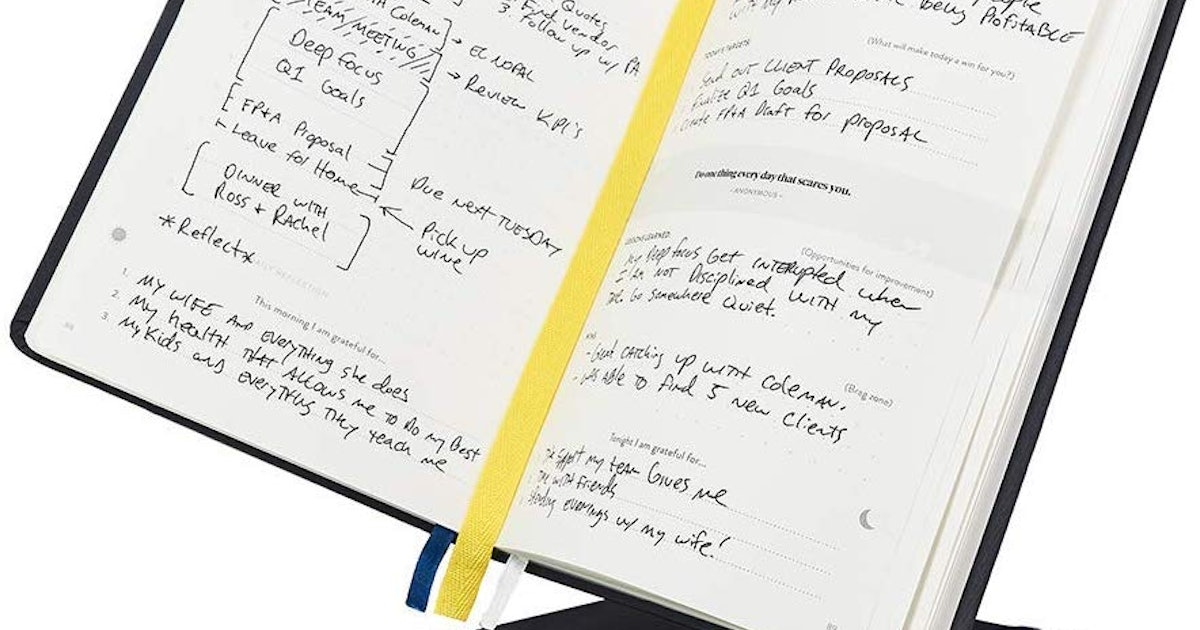 Coleman
TEAM MEETING
Deep focus
Q1 Goals
FP&A Proposal
Leave for Home
DINNER WITH
Ross & RAchel
*Reflect*
Quotes
2. Find vendor
3. Follow up w/ PA
→ EL NOPAL
→ Review KPI's
Due next TUESDAY
Pick up
wine!
DAILY REFLECTION
This morning I am grateful for...
1. MY WIFE AND everything she does
2. My health THAT ALLOWS me TO DO my Best
3. My Kids and everything they teach me
88
people
being PROFITABLE
TODAY'S TARGETS:
(What will make today a win for you?)
Send out CLIENT PROPOSALS
Finalize Q1 Goals
Create FP&A Draft for proposal
Do one thing every day that scares you.
- ANONYMOUS -
LESSONS LEARNED:
(Opportunities for improvement)
My Deep focus Get INTERUPTED when
I Am NOT Disciplined WITH my
Go Somewhere Quiet.
(Brag zone)
- Great CATCHING up WITH Coleman.
- was ABle TO find 5 New Clients
Tonight I am grateful for...
my TEAM Gives me
WITH friends
evenings w/ my wife!
89